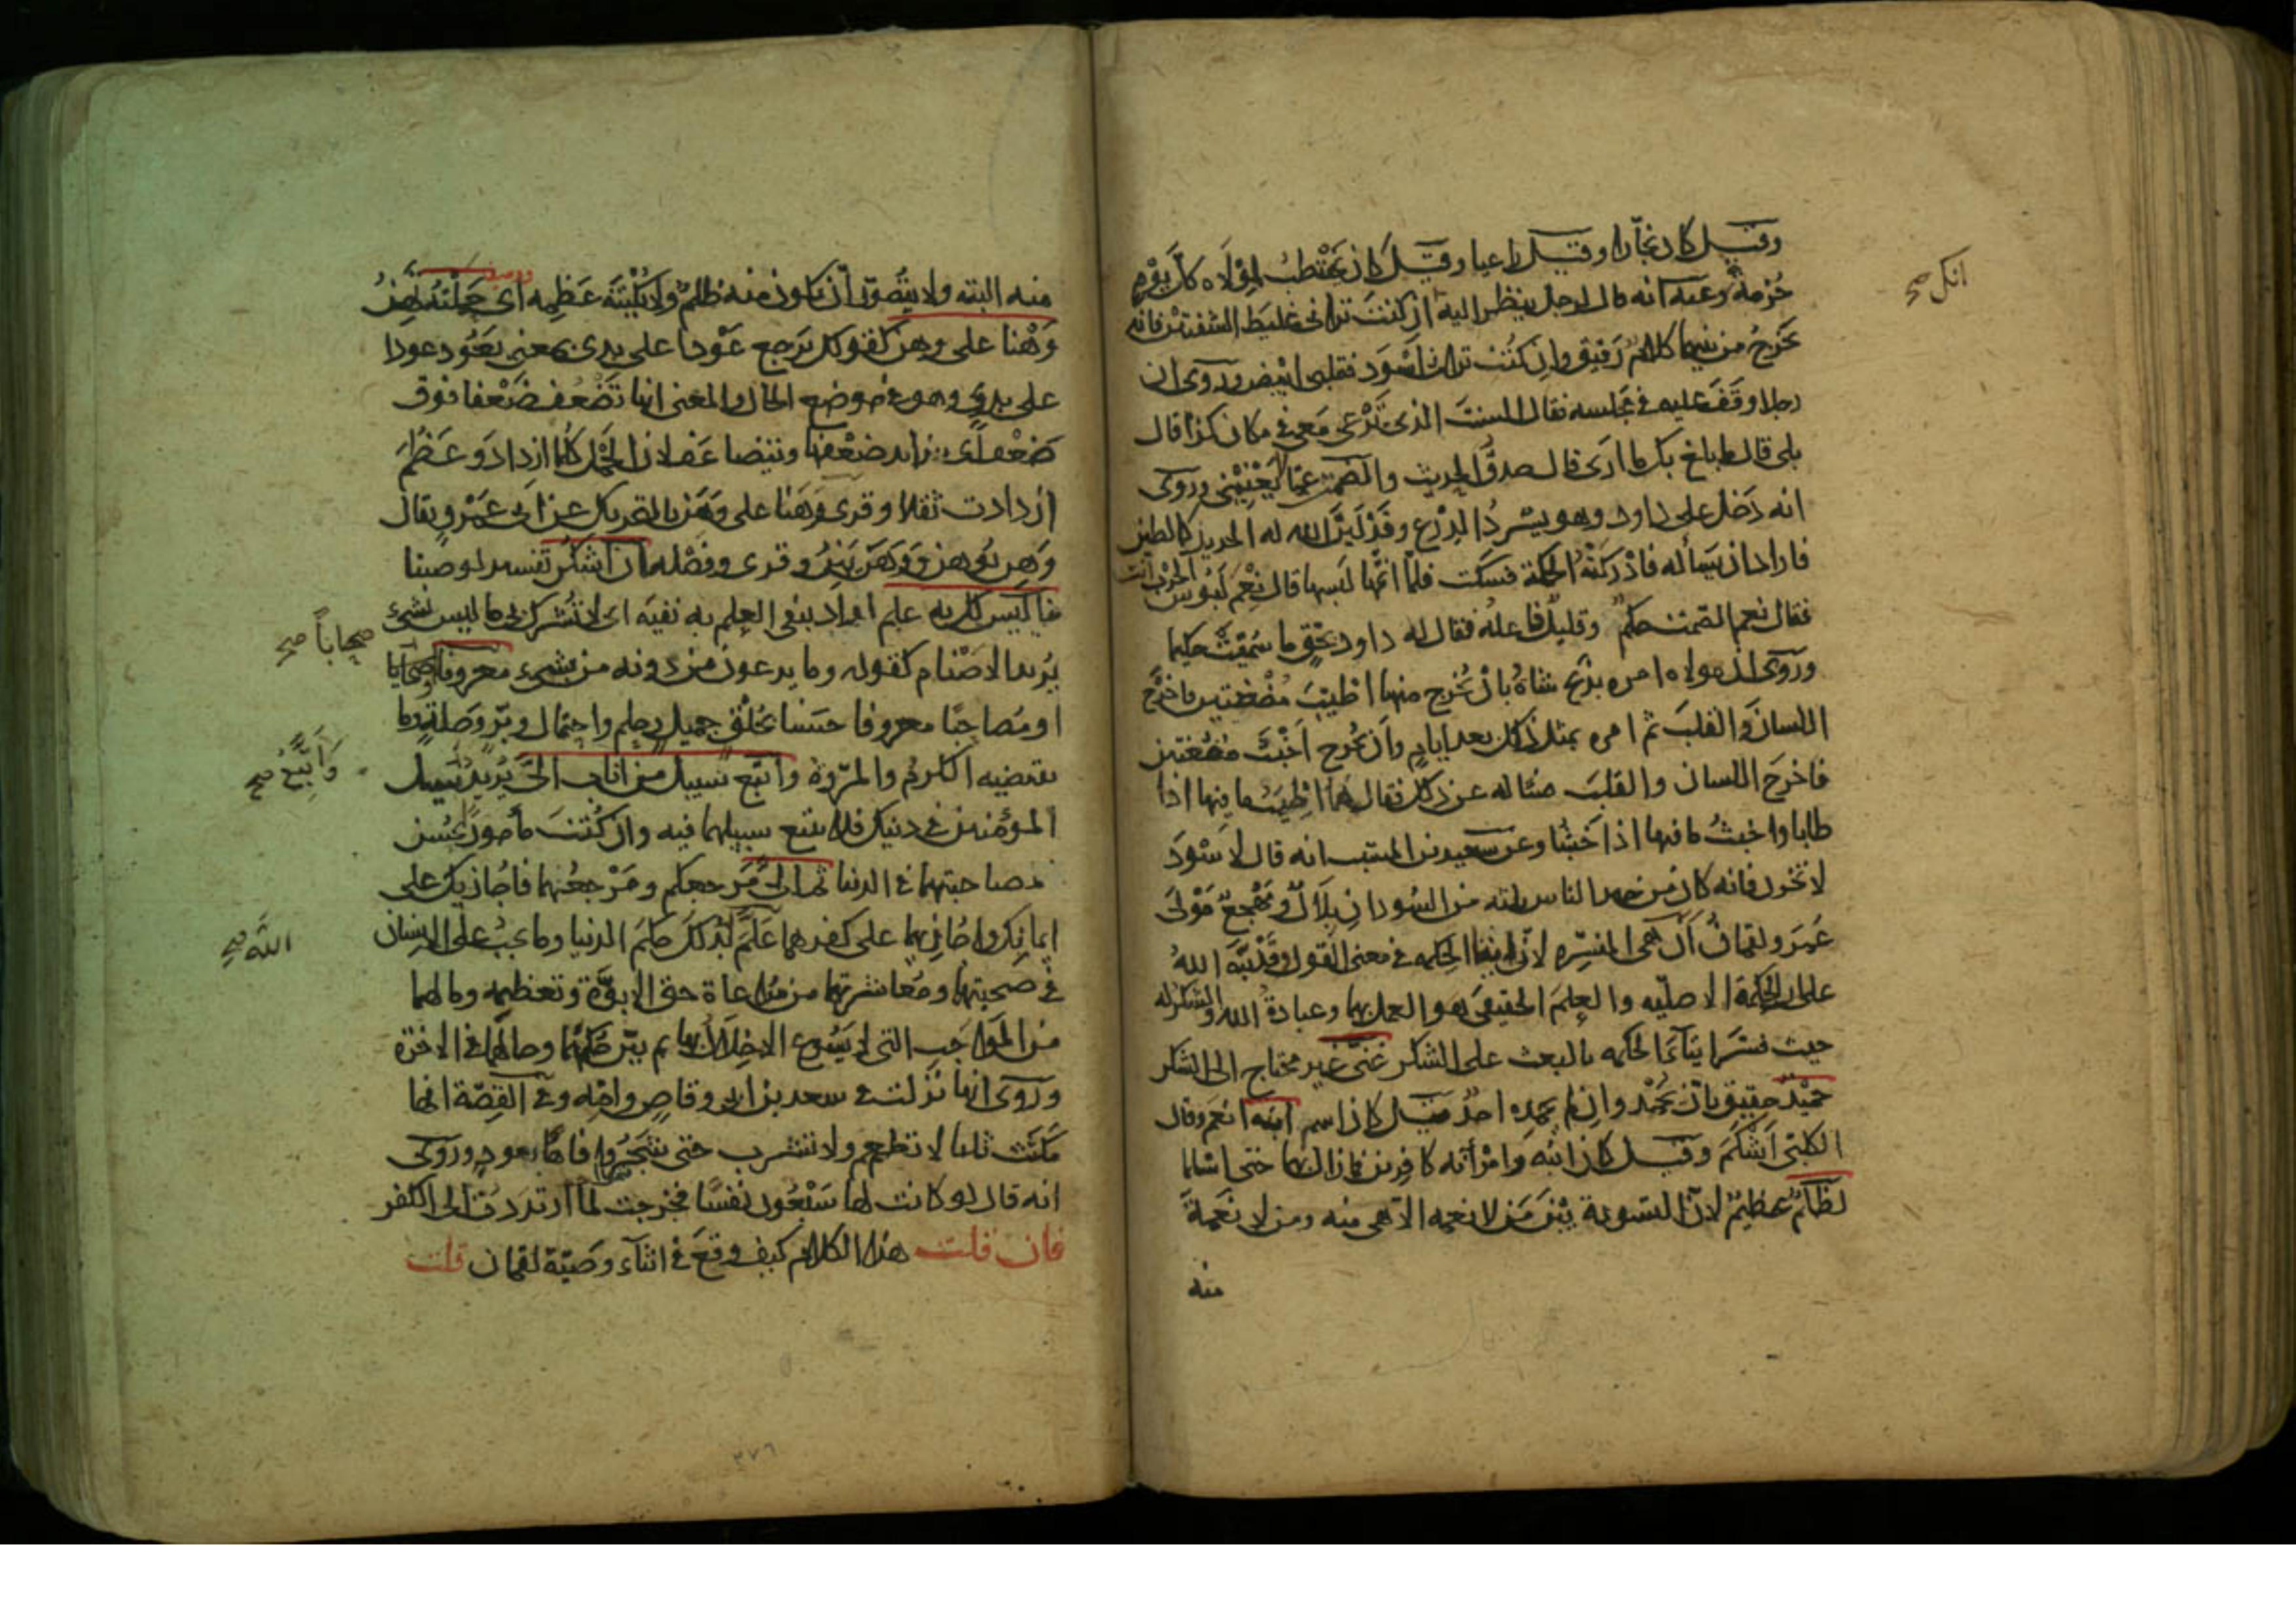 وقيل كان نجارا وقيل راعيا وقيل كان يحتطب لمولاه كل يوم
حزمة وعنه انه قال لرجل ينظر اليه ان كنت تراني غليظ الشفتين فانه
يخرج من بينهما كلام رقيق وان كنت تراني اسود فقلبي ابيض وروى ان
رجلا وقف عليه في مجلسه فقال الست الذي ترعى معي في مكان كذا قال
بلى قال ما بلغ بك ما ارى قال صدق الحديث والصمت عما لا يعنيني وروى
انه دخل على داود وهو يسرد الدرع وقد لين الله له الحديد كالطين
فاراد ان يسأله فادركته الحكمة فسكت فلما اتمها لبسها قال نعم لبوس الحرب انت
فقال نعم الصمت حكم وقليل فاعله فقال له داود بحق ما سميت حكيما
وروى ان مولاه امره بذبح شاة بان يخرج منها اطيب مضغتين فاخرج
اللسان والقلب ثم امره بمثل ذلك بعد ايام وان يخرج اخبث مضغتين
فاخرج اللسان والقلب فساله عن ذلك فقال هما اطيب ما فيها اذا
طابا واخبث ما فيها اذا خبثا وعن سعيد بن المسيب انه قال لاسود
لا تحزن فانه كان من خير الناس ثلثه من السودان بلال ومهجع مولى
عمر ولقمان ان هي المفسره لان ايتا الحكمه في معنى القول وقد نبه الله
على ان الحكمة الاصليه والعلم الحقيقي هو العمل بهما وعبادة الله والشكر له
حيث فسر ايتآء الحكمه بالبعث على الشكر غني غير محتاج الى الشكر
حميد حقيق بان يحمد وان لم يحمده احد قيل كان اسم ابنه انعم وقال
الكلبي اشكم وقيل كان ابنه وامرأته كافرين فما زال بهما حتى اسلما
لظلم عظيم لان التسوية بين من لا نعمه الا هي منه ومن لا نعمة
منه
انكل صح
منه البته ولا يتصور ان تكون منه ظلم ولا يكتنه عظمه اي حملته تهن
وهنا على وهن كقولك ترجع عودا على بدى بمعنى يعود عودا
على بدء وهو في موضع الحال والمعنى انها تضعف ضعفا فوق
ضعف اي يتزايد ضعفها ويتضاعف لان الحمل كلما ازداد وعظم
ازدادت ثقلا وقرى وهنا على وهن بالتحريك عن ابي عمرو يقال
وهن يوهن ووهن يهن وقرى وفصله ان اشكر تفسير لوصينا
ما ليس لك به علم اراد بنفي العلم به نفيه اي لا تشرك بي ما ليس بشيء
يريد الاصنام كقوله وما يدعون من دونه من شيء معروفا صحابا
او مصاحبا معروفا حسنا بخلق جميل وحلم واحتمال وبر وصلة وما
يقتضيه الكرم والمروة واتبع سبيل من اناب الي يريد سبيل
المؤمنين في دينك فلا تتبع سبيلهما فيه وان كنت مأمورا بحسن
مصاحبتهما في الدنيا ثم الي مرجعكم ومرجعهما فاجازيك على
ايمانك واجازيهما على كفرهما علم بذلك حكم الدنيا وما يجب على الانسان
في صحبتهما ومعاشرتهما من مراعاة حق الابوة وتعظيمه وما لهما
من المواجب التي لا يسوغ الاخلال بها ثم بين حكمهما وحالهما في الاخرة
وروى انها نزلت في سعد بن ابي وقاص وامه وفي القصة انها
مكثت ثلثا لا تطعم ولا تشرب حتى شجروا فاها بعود وروى
انه قال لو كانت لها سبعون نفسا فخرجت لما ارتددت الى الكفر
فان قلت هذا الكلام كيف وقع في اثنآء وصية لقمان قلت
صحابا صح
واتبع صح
الله صح
٣٧٦